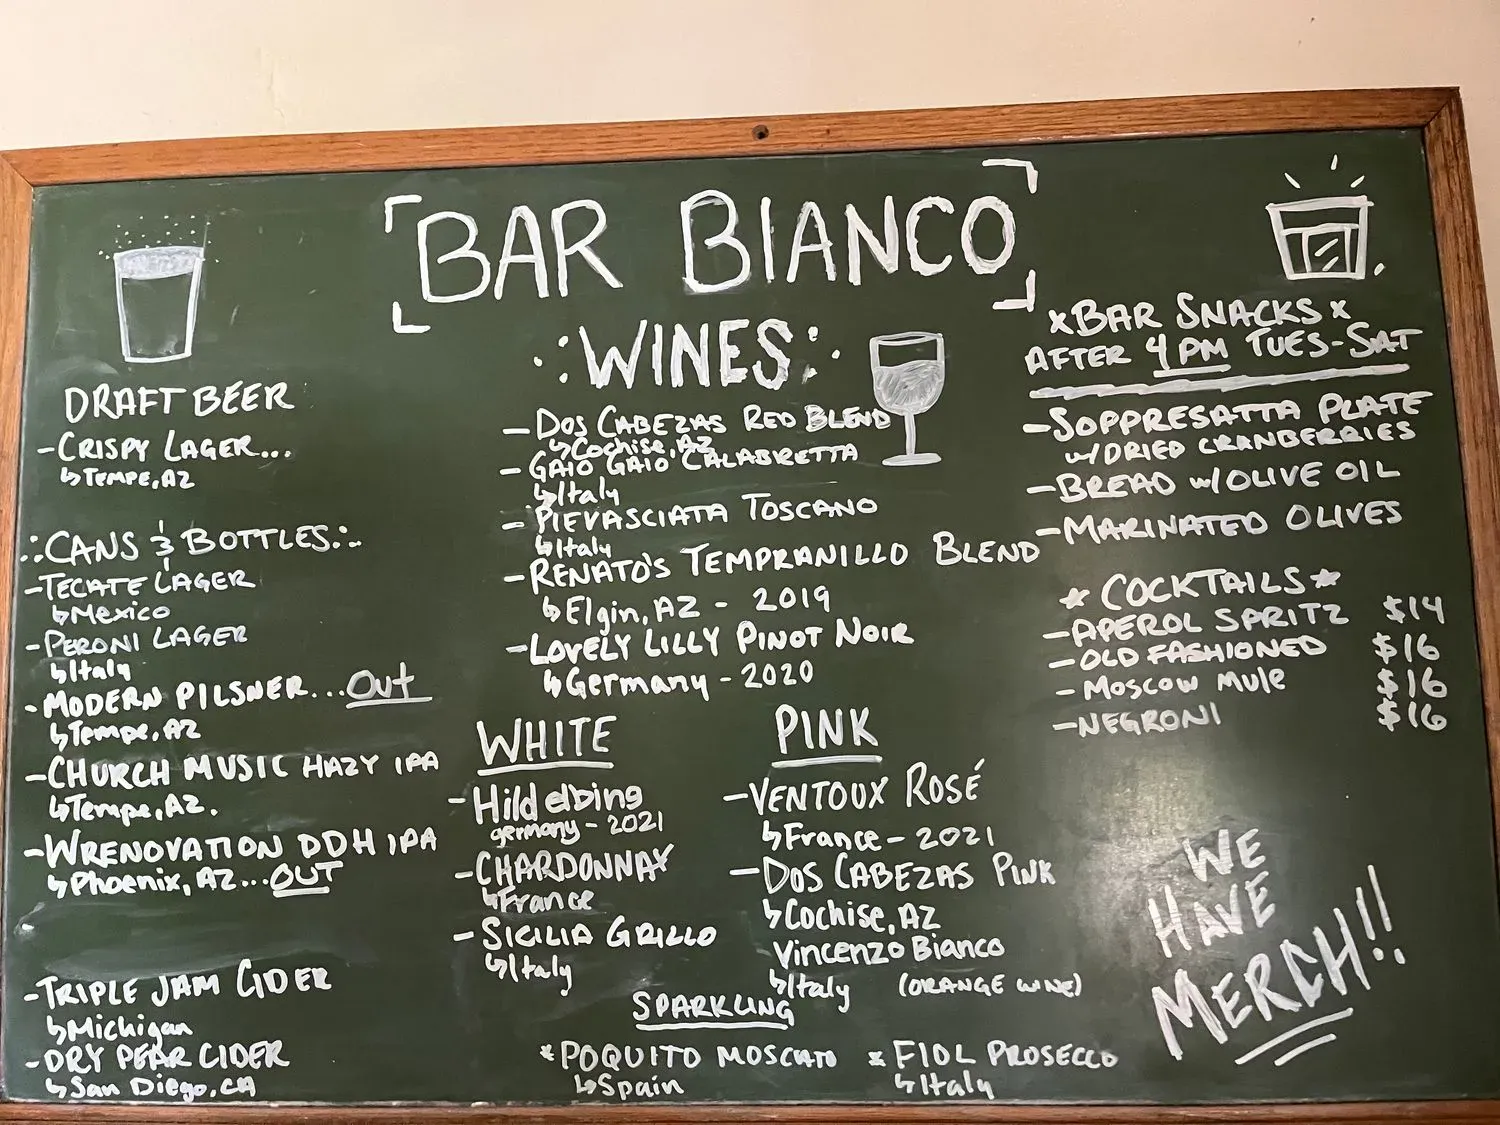 BAR BIANCO
DRAFT BEER
- CRISPY LAGER...
↳ TEMPE, AZ
∴ CANS & BOTTLES ∴
- TECATE LAGER
↳ Mexico
- PERONI LAGER
↳ Italy
- MODERN PILSNER... Out
↳ Tempe, AZ
- CHURCH MUSIC HAZY IPA
↳ Tempe, AZ.
- WRENOVATION DDH IPA
↳ Phoenix, AZ... OUT
- TRIPLE JAM CIDER
↳ Michigan
- DRY PEAR CIDER
↳ San Diego, CA
WINES
- DOS CABEZAS RED BLEND
↳ Cochise, AZ
- GAIO GAIO CALABRETTA
↳ Italy
- PIEVASCIATA TOSCANO
↳ Italy
- RENATO'S TEMPRANILLO BLEND
↳ Elgin, AZ - 2019
- LOVELY LILLY PINOT NOIR
↳ Germany - 2020
WHITE
- Hild elbing
germany - 2021
- CHARDONNAY
↳ France
- SICILIA GRILLO
↳ Italy
PINK
- VENTOUX ROSÉ
↳ France - 2021
- DOS CABEZAS PINK
↳ Cochise, AZ
Vincenzo Bianco
↳ Italy (ORANGE WINE)
SPARKLING
* POQUITO MOSCATO
↳ Spain
* FIOL PROSECCO
↳ Italy
x BAR SNACKS x
AFTER 4 PM TUES-SAT
- SOPPRESATTA PLATE
w/ DRIED CRANBERRIES
- BREAD w/ OLIVE OIL
- MARINATED OLIVES
* COCKTAILS *
- APEROL SPRITZ $14
- OLD FASHIONED $16
- MOSCOW MULE $16
- NEGRONI $16
WE
HAVE
MERCH!!